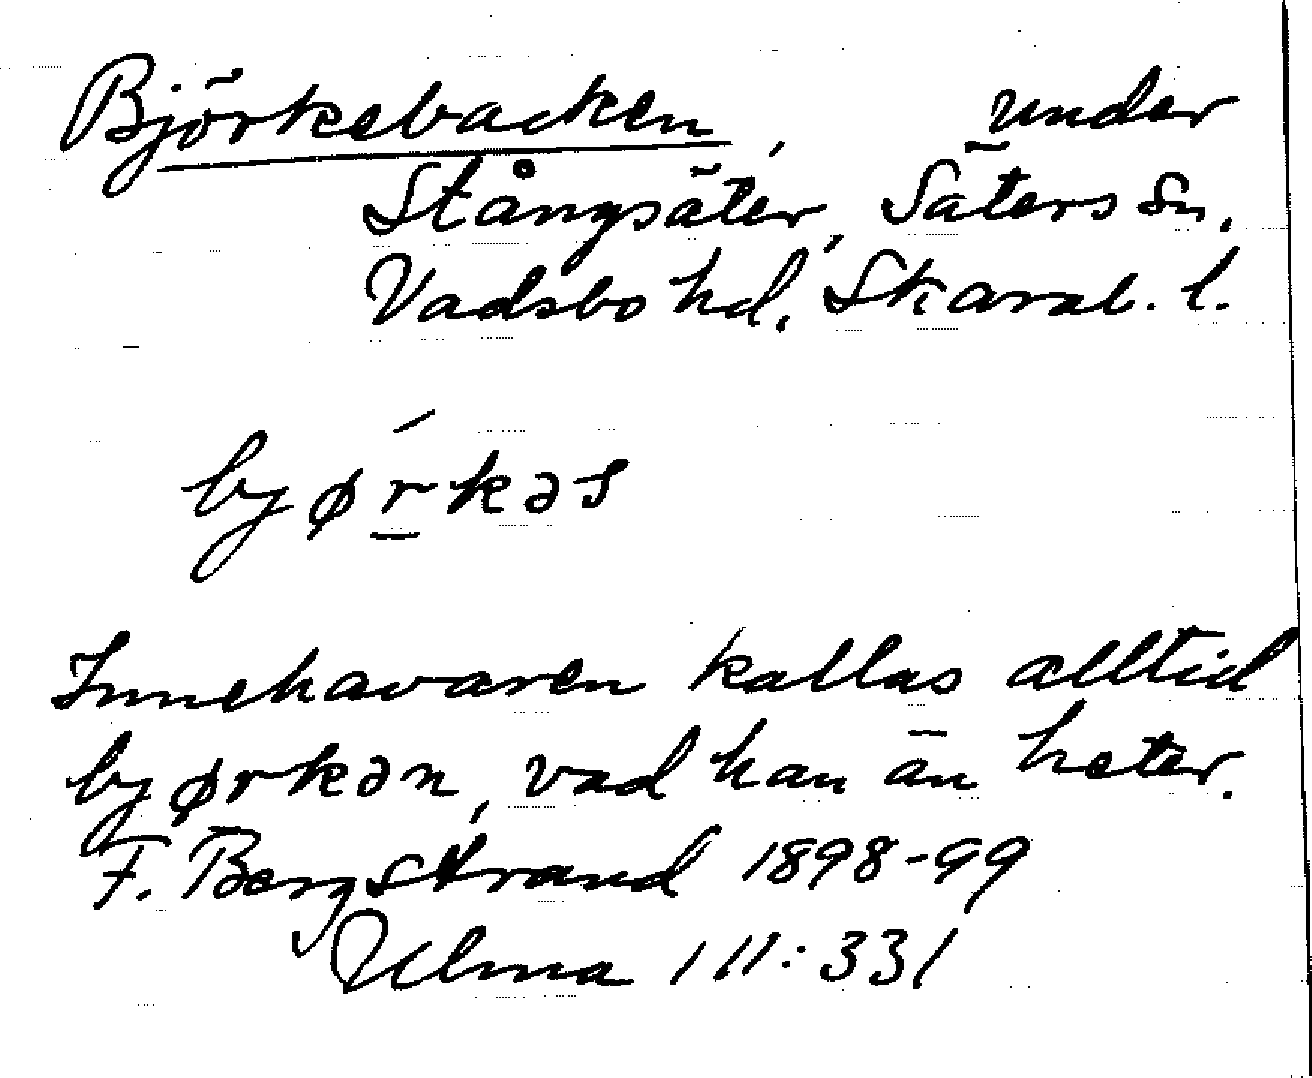 Björkebacken, under
Stångsäter, Säters Sn,
Vadsbo hd, Skarab. l.
byǿrkəs
Innehavaren kallas alltid
byørkən, vad han än heter.
F. Bergstrand 1898-99
Ulma 111:331